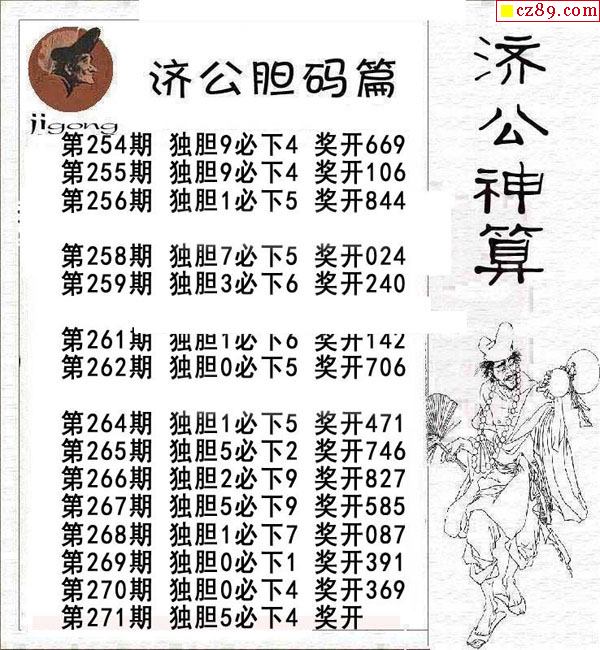 cz89.com
济公胆码篇
jigong
第254期 独胆9必下4 奖开669
第255期 独胆9必下4 奖开106
第256期 独胆1必下5 奖开844
第258期 独胆7必下5 奖开024
第259期 独胆3必下6 奖开240
第261期 独胆1必下6 奖开142
第262期 独胆0必下5 奖开706
第264期 独胆1必下5 奖开471
第265期 独胆5必下2 奖开746
第266期 独胆2必下9 奖开827
第267期 独胆5必下9 奖开585
第268期 独胆1必下7 奖开087
第269期 独胆0必下1 奖开391
第270期 独胆0必下4 奖开369
第271期 独胆5必下4 奖开
济公神算